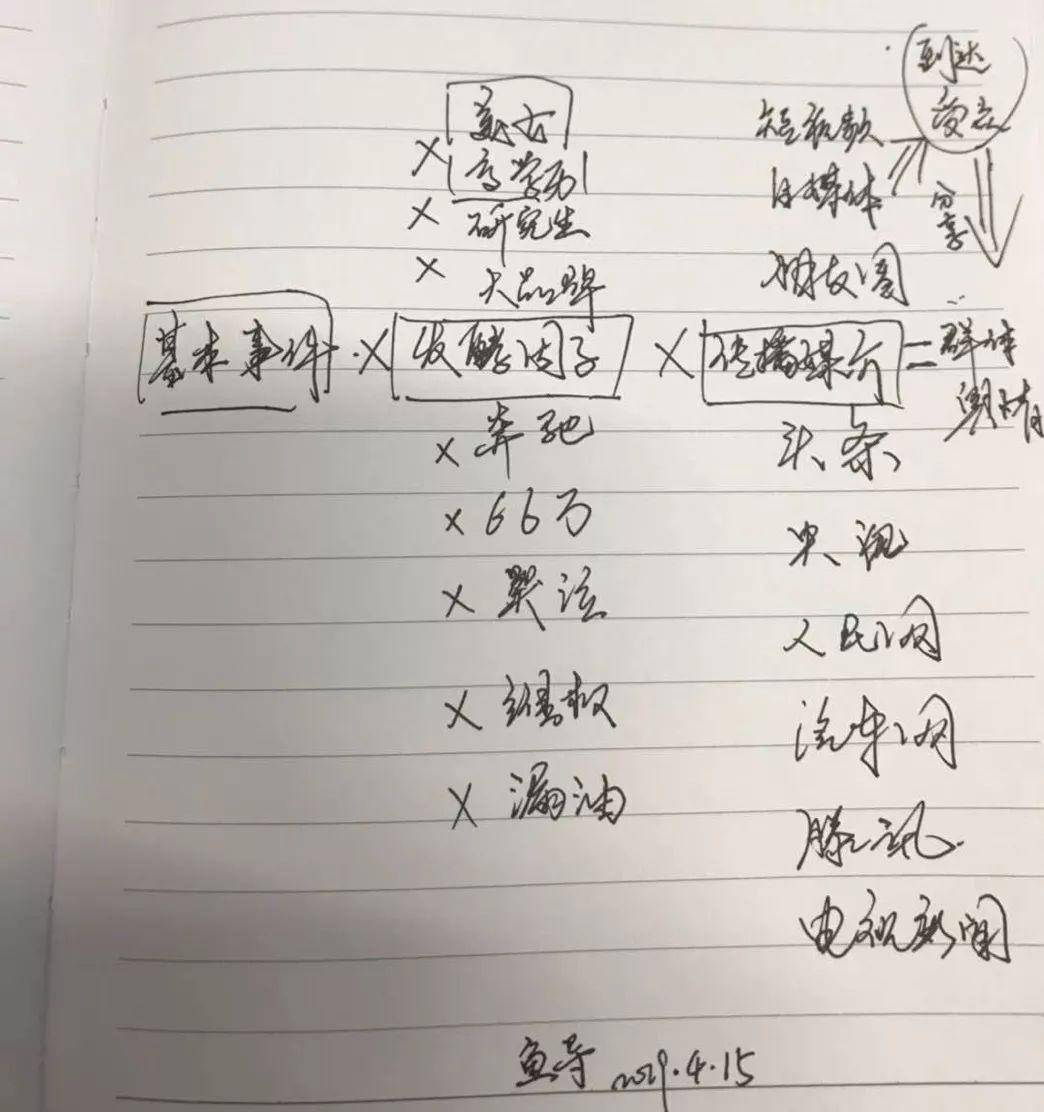 到达
受众
美女
短视频
× 高学历
自媒体
分享
× 研究生
× 大品牌
朋友圈
基本事件 × 发酵因子 × 传播媒介 = 群体
× 奔驰
头条
× 66万
央视
× 哭泣
人民网
× 维权
汽车网
× 漏油
腾讯
电视新闻
鱼导 2019.4.15